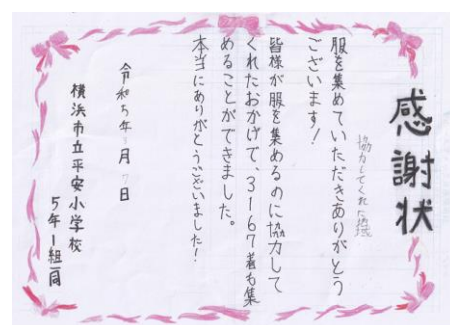 感謝状
協力してくれた地域
服を集めていただきありがとう
ございます!
皆様が服を集めるのに協力して
くれたおかげで、3167着も集
めることができました。
本当にありがとうございました!
令和5年 月 日
横浜市立平安小学校
5年1組一同